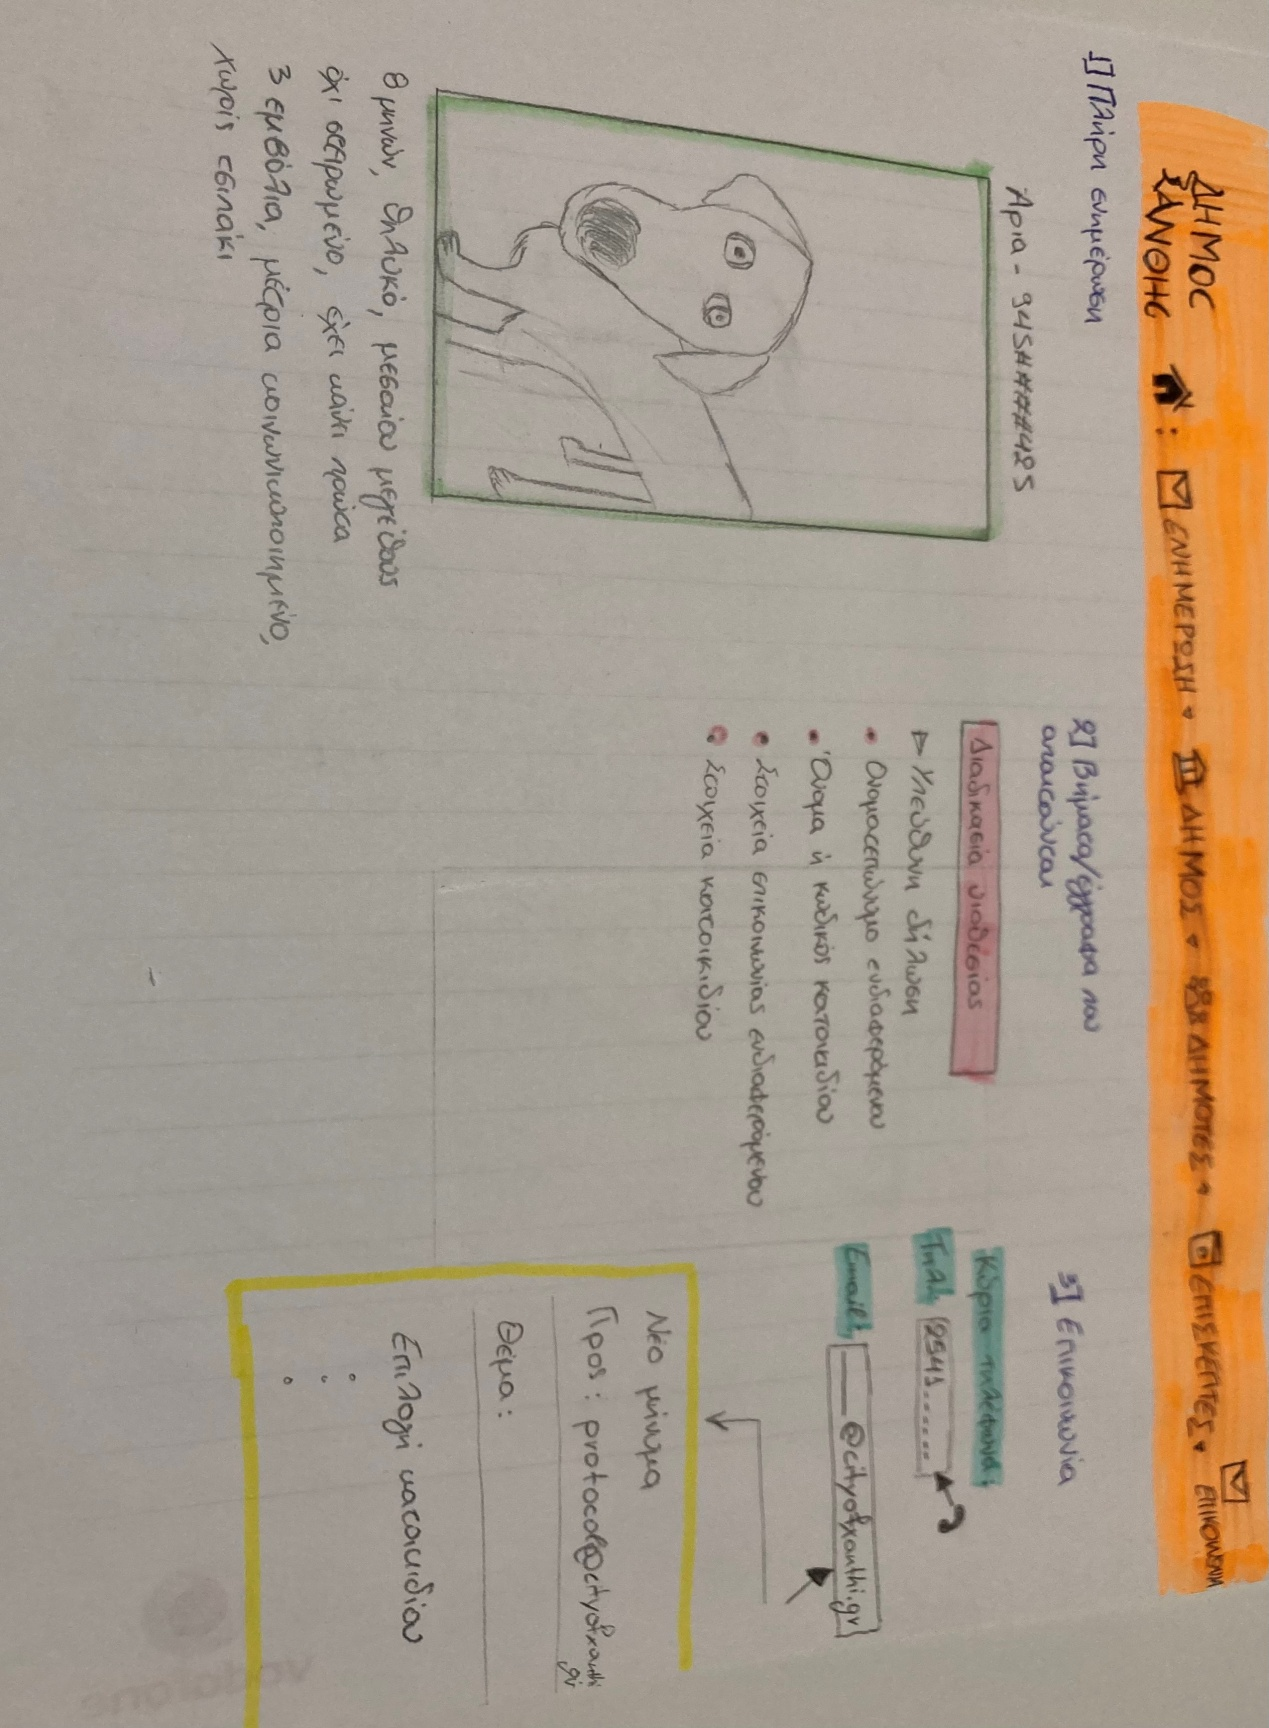 ΔΗΜΟΣ
ΞΑΝΘΗΣ
: ΕΝΗΜΕΡΩΣΗ ΔΗΜΟΣ ΔΗΜΟΤΕΣ ΕΠΙΣΚΕΠΤΕΣ ΕΠΙΚΟΙΝΩΝΙΑ
1] Πλήρη ενημέρωση
Άρια - 945#####485
8 μηνών, θηλυκό, μεσαίου μεγέθους
όχι στειρωμένο, έχει κάνει πρώτα
3 εμβόλια, μέτρια κοινωνικοποιημένο,
χωρίς τσιπάκι
2] Βήματα/έγγραφα που
απαιτούνται
Διαδικασία υιοθεσίας
Υπεύθυνη δήλωση
• Ονοματεπώνυμο ενδιαφερόμενου
• Όνομα ή κωδικός κατοικιδίου
• Στοιχεία επικοινωνίας ενδιαφερόμενου
• Στοιχεία κατοικιδίου
3] Επικοινωνία
Κύρια τηλέφωνα:
Τηλ: 2541......
Email: ___@cityofxanthi.gr
Νέο μήνυμα
Προς: protocol@cityofxanthi
gr
Θέμα:
Επιλογή κατοικιδίου
vodafone